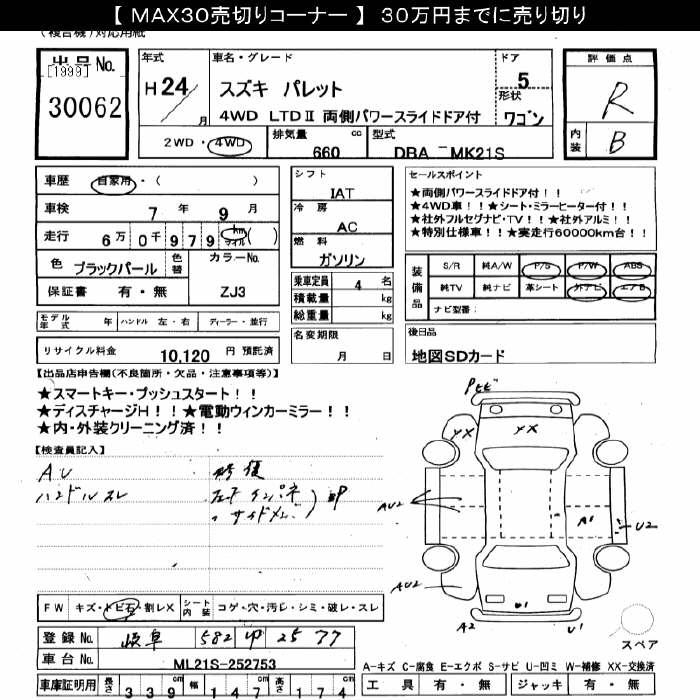 【 MAX30売切りコーナー 】 30万円までに売り切り
(複合機)対応用紙
出品No.
[1999]
30062
年式
H 24
月
車名・グレード
スズキ パレット
4WD LTDⅡ 両側パワースライドドア付
ドア
5
形状
ワゴン
評価点
R
内装
B
2WD・4WD
排気量
660
cc
型式
DBA - MK21S
車歴
自家用・( )
車検
7 年 9 月
走行
6万 0千 9 7 9 km マイル ( )
色
ブラックパール
色替
カラーNo.
保証書
有・無
ZJ3
シフト
IAT
冷房
AC
燃料
ガソリン
乗車定員
4 名
積載量
kg
総重量
kg
セールスポイント
★両側パワースライドドア付！！
★4WD車！！★シート・ミラーヒーター付！！
★社外フルセグナビ・TV！！★社外アルミ！！
★特別仕様車！！★実走行60000km台！！
装備品
S/R 純A/W P/S P/W ABS
純TV 純ナビ 革シート 外ナビ エアB
ナビ型番:
モデル年式
年
ハンドル
左・右
ディーラー・並行
名変期限
月 日
後日品
地図SDカード
リサイクル料金
10,120 円 預託済
【出品店申告欄(不良箇所・欠品・注意事項等)】
★スマートキー・プッシュスタート！！
★ディスチャージH！！★電動ウィンカーミラー！！
★内・外装クリーニング済！！
【検査員記入】
AU
ハンドルスレ
修復
左F インパネ
〃 サイドメンバ
P
Pヒビ
YX
YX
AU2
A1
U2
AU2
U1
A2
U1
スペア
FW
キズ・トビ石・割レX
シート内装
コゲ・穴・汚レ・シミ・破レ・スレ
登録No.
岐阜 582 ゆ 25 77
車台No.
ML21S-252753
A-キズ C-腐食 E-エクボ S-サビ U-凹ミ W-補修 XX-交換済
車庫証明用
長さ
339cm
幅
147
高さ
174
工具
有・無
ジャッキ
有・無